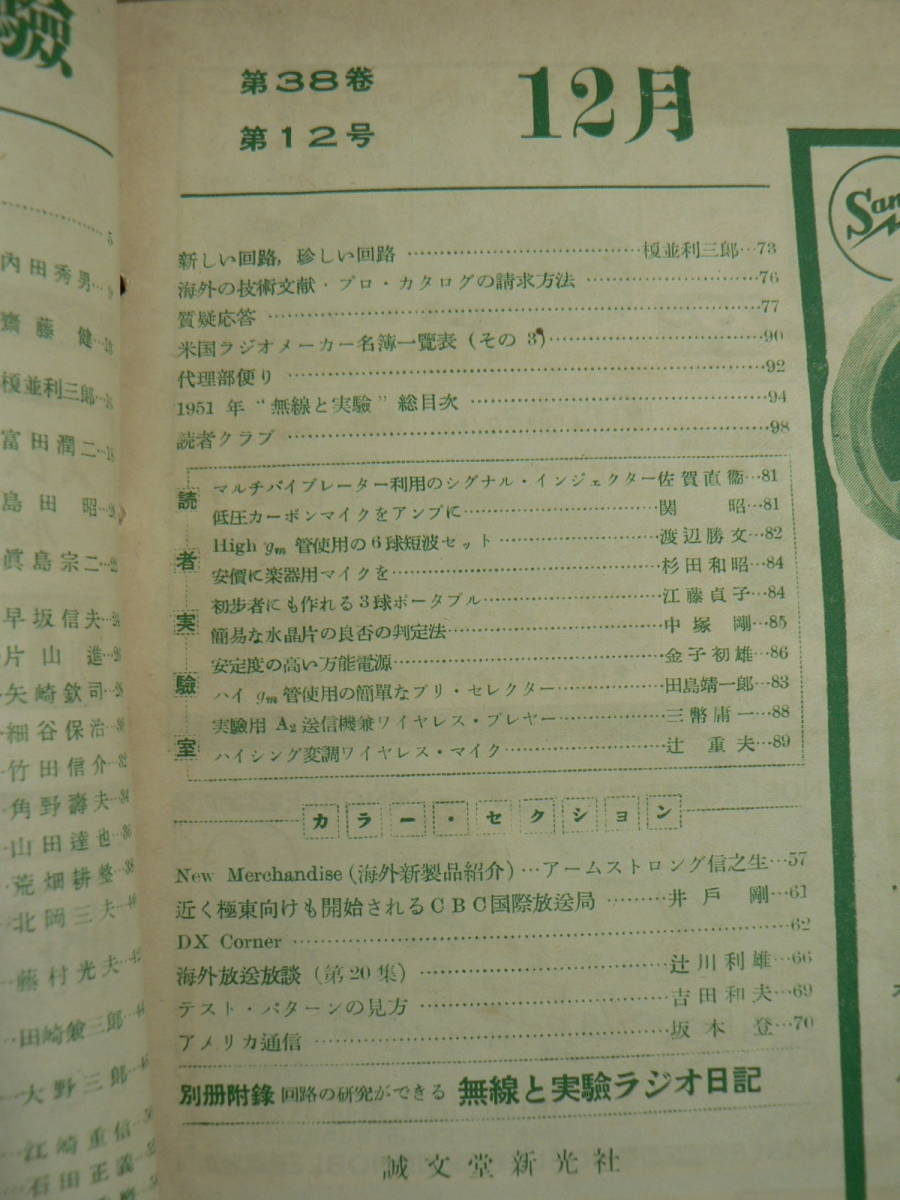 驗
第38卷
第12号
12月
新しい回路，珍しい回路 榎並利三郎 73
海外の技術文献・プロ・カタログの請求方法 76
質疑応答 77
米国ラジオメーカー名簿一覽表（その3） 90
代理部便り 92
1951年“無線と実驗”総目次 94
読者クラブ 98
読者実驗室
マルチバイブレーター利用のシグナル・インジェクター 佐賀直衞 81
低圧カーボンマイクをアンプに 関昭 81
High gm 管使用の6球短波セット 渡辺勝文 82
安價に楽器用マイクを 杉田和昭 84
初歩者にも作れる3球ポータブル 江藤貞子 84
簡易な水晶片の良否の判定法 中塚剛 85
安定度の高い万能電源 金子初雄 86
ハイ gm 管使用の簡單なプリ・セレクター 田島靖一郎 83
実驗用 A2 送信機兼ワイヤレス・プレヤー 三幣庸一 88
ハイシング変調ワイヤレス・マイク 辻重夫 89
カラー・セクション
New Merchandise（海外新製品紹介） アームストロング信之生 57
近く極東向けも開始されるCBC国際放送局 井戸剛 61
DX Corner 62
海外放送放談（第20集） 辻川利雄 66
テスト・パターンの見方 吉田和夫 69
アメリカ通信 坂本登 70
別冊附錄 回路の研究ができる 無線と実驗ラジオ日記
誠文堂新光社
5
内田秀男 9
齋藤健
榎並利三郎
富田潤二 18
島田昭
眞島宗二 22
早坂信夫
片山進
矢崎欽司
細谷保治 30
竹田信介 32
角野壽夫 34
山田達也 36
荒畑耕整 38
北岡三夫
藤村光夫
田崎儉三郎
大野三郎
江崎重信
石田正義
San